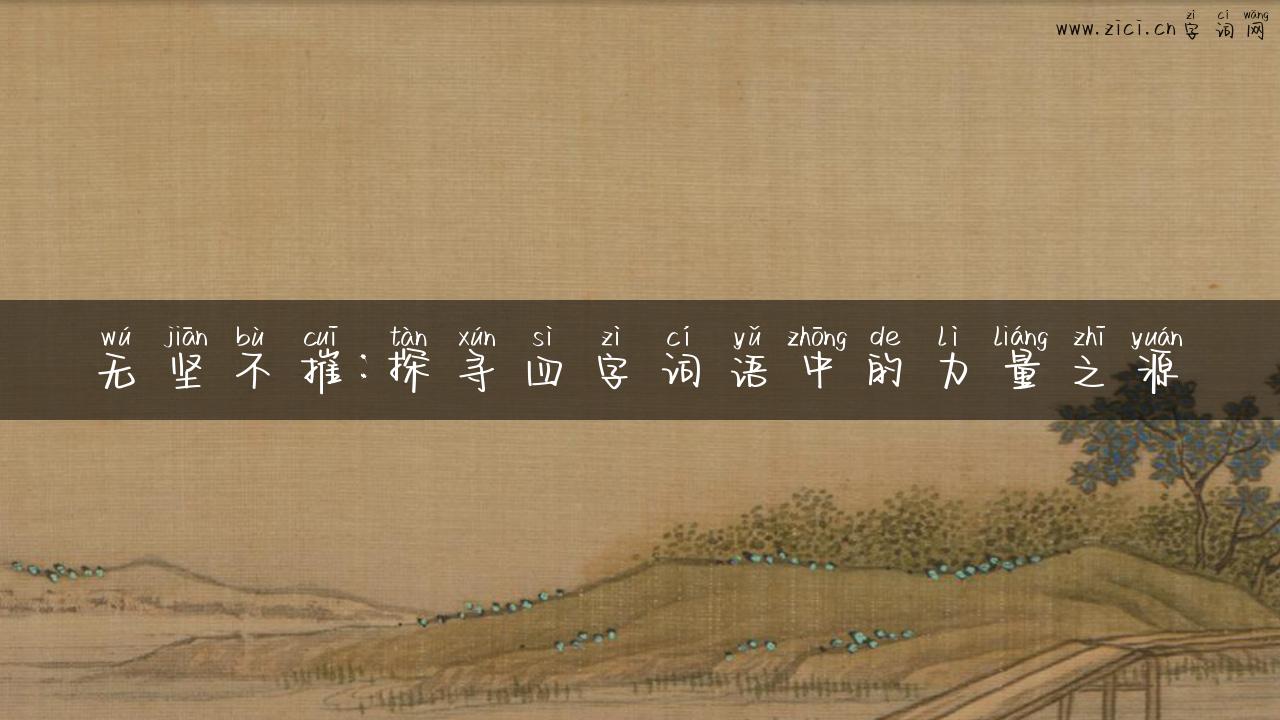 zì cí wǎng
www.zici.cn字词网
wú jiān bù cuī tàn xún sì zì cí yǔ zhōng de lì liáng zhī yuán
无坚不摧:探寻四字词语中的力量之源